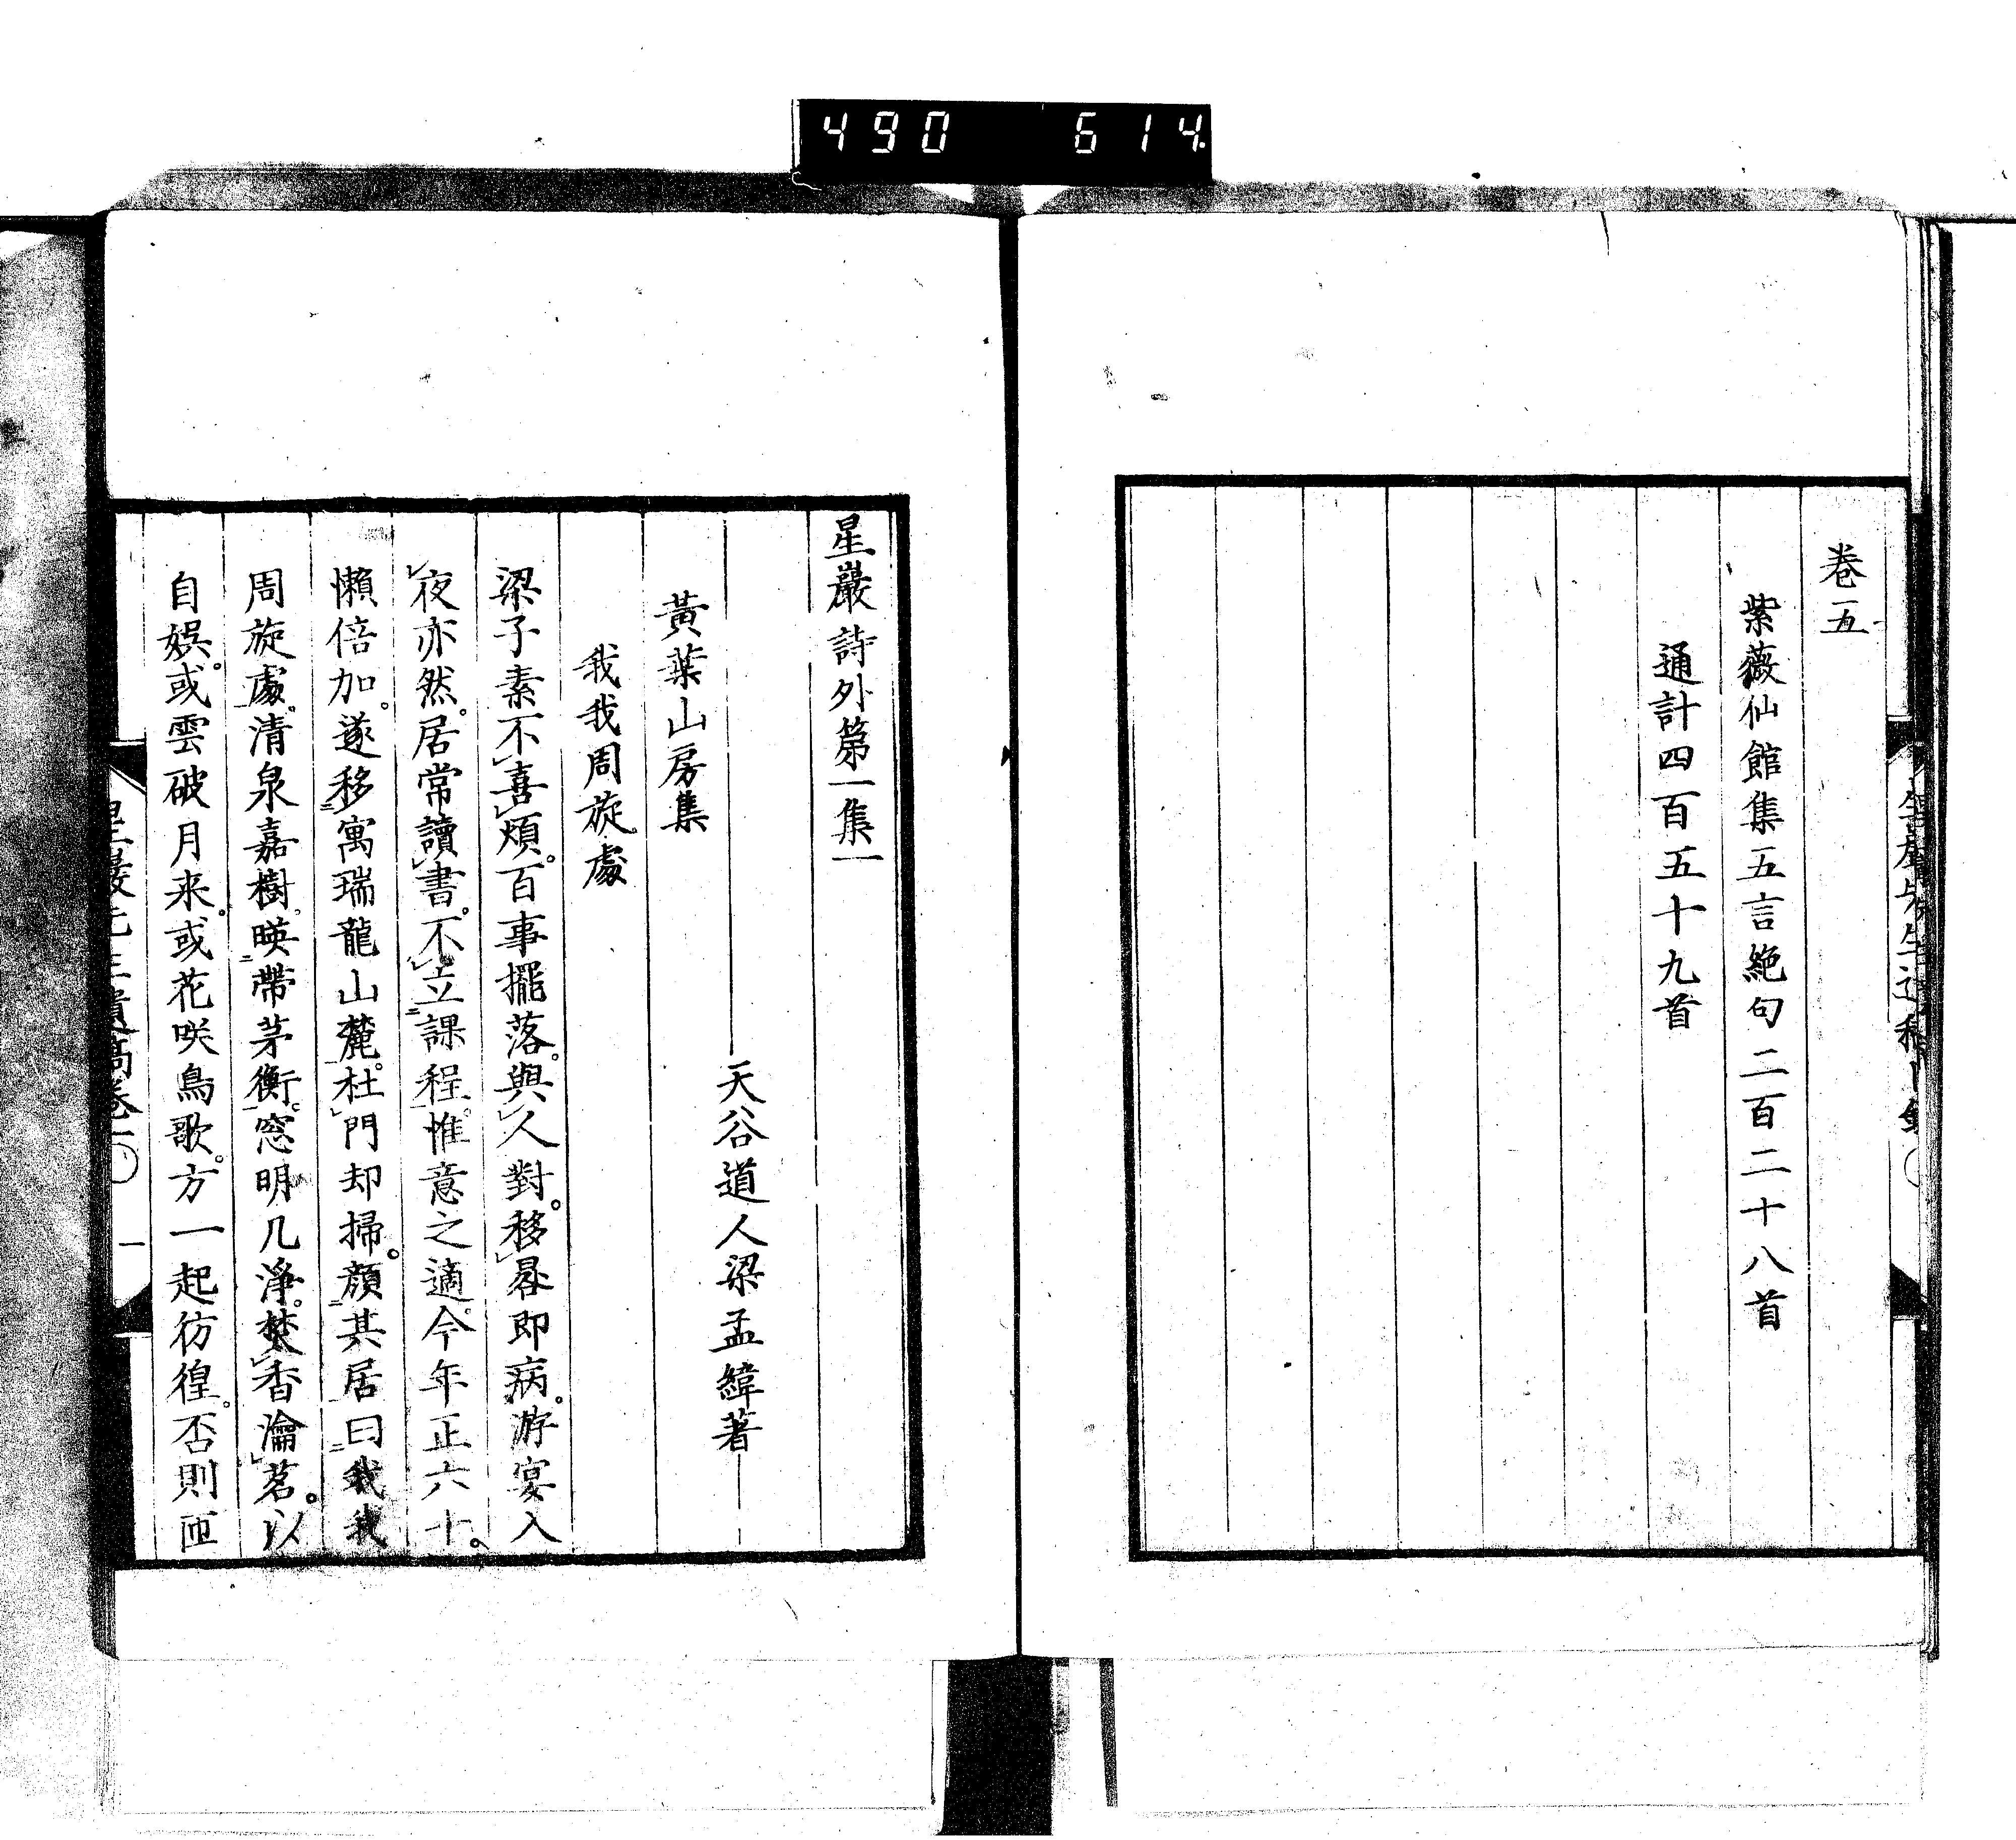 490 614
卷五
紫薇仙館集五言絶句二百二十八首
通計四百五十九首
星巖詩外第一集一
天谷道人梁孟緯著
黃葉山房集
我我周旋處
梁子素不喜煩。百事擺落。與人對。移晷即病。游宴入
夜亦然。居常讀書。不立課程。惟意之適。今年正六十。
懶倍加。遂移寓瑞龍山麓。杜門却掃。顏其居曰我我
周旋處。清泉嘉樹。暎帶茅衡。窓明几淨。焚香瀹茗。以
自娯。或雲破月来。或花咲鳥歌。方一起彷徨。否則匝
星巖先生遺稿卷一
一